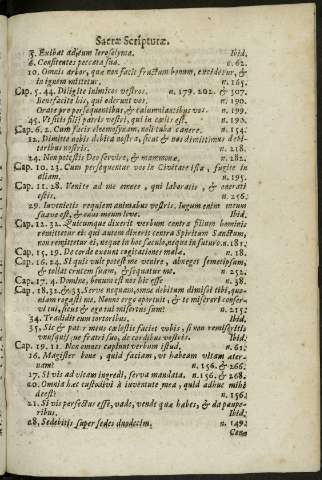 Sacræ Scripturæ.
5. Exibat ad eum Ierosolyma. Ibid.
6. Confitentes peccata sua. n. 62.
10. Omnis arbor, quæ non facit fructum bonum, excidetur, &
in ignem mittetur. n. 165.
Cap. 5. 44. Diligite inimicos vestros. n. 179. 202. & 307.
Benefacite his, qui oderunt vos. n. 190.
Orate pro persequentibus, & calumniantibus vos. n. 199.
45. Vt sitis filij patris vestri, qui in cœlis est. n. 190.
Cap. 6. 2. Cum facis eleemosynam, noli tuba canere. n. 154.
12. Dimitte nobis debita nostra, sicut & nos dimittimus debi-
toribus nostris. n. 218.
24. Non potestis Deo servire, & mammonæ. n. 282.
Cap. 10. 23. Cum persequentur vos in Civitate ista, fugite in
aliam. n. 195.
Cap. 11. 28. Venite ad me omnes, qui laboratis, & onerati
estis. n. 256.
29. Invenietis requiem animabus vestris, iugum enim meum
suave est, & onus meum leve. Ibid.
Cap. 12. 32. Quicumque dixerit verbum contra filium hominis
remittetur ei: qui autem dixerit contra Spiritum Sanctum,
non remittetur ei, neque in hoc sæculo, neque in futuro. n. 181.
Cap. 15. 19. De corde exeunt cogitationes malæ. n. 18.
Cap. 16. 24. Si quis vult post me venire, abneget semetipsum,
& tollat crucem suam, & sequatur me. n. 252.
Cap. 17. 4. Domine, bonum est nos hic esse n. 38.
Cap. 18. 32. & 33. Serve nequam, omne debitum dimisi tibi, quo-
niam rogasti me. Nonne ergo oportuit, & te misereri conser-
vi tui, sicut & ego tui misertus sum? n. 215.
34. Tradidit eum tortoribus. Ibid.
35. Sic & pater meus cœlestis faciet vobis, si non remiseritis
vnusquisque fratri suo, de cordibus vestris. Ibid.
Cap. 19. 11. Non omnes capiunt verbum istud. n. 62.
16. Magister bone, quid faciam, vt habeam vitam æter-
nam? n. 156. & 266.
17. Si vis ad vitam ingredi, serva mandata. n. 156. & 268.
20. Omnia hæc custodivi à iuventute mea, quid adhuc mihi
deest? n. 156.
21. Si vis perfectus esse, vade, vende quæ habes, & da paupe-
ribus. Ibid.
28. Sedebitis super sedes duodecim. n. 149.